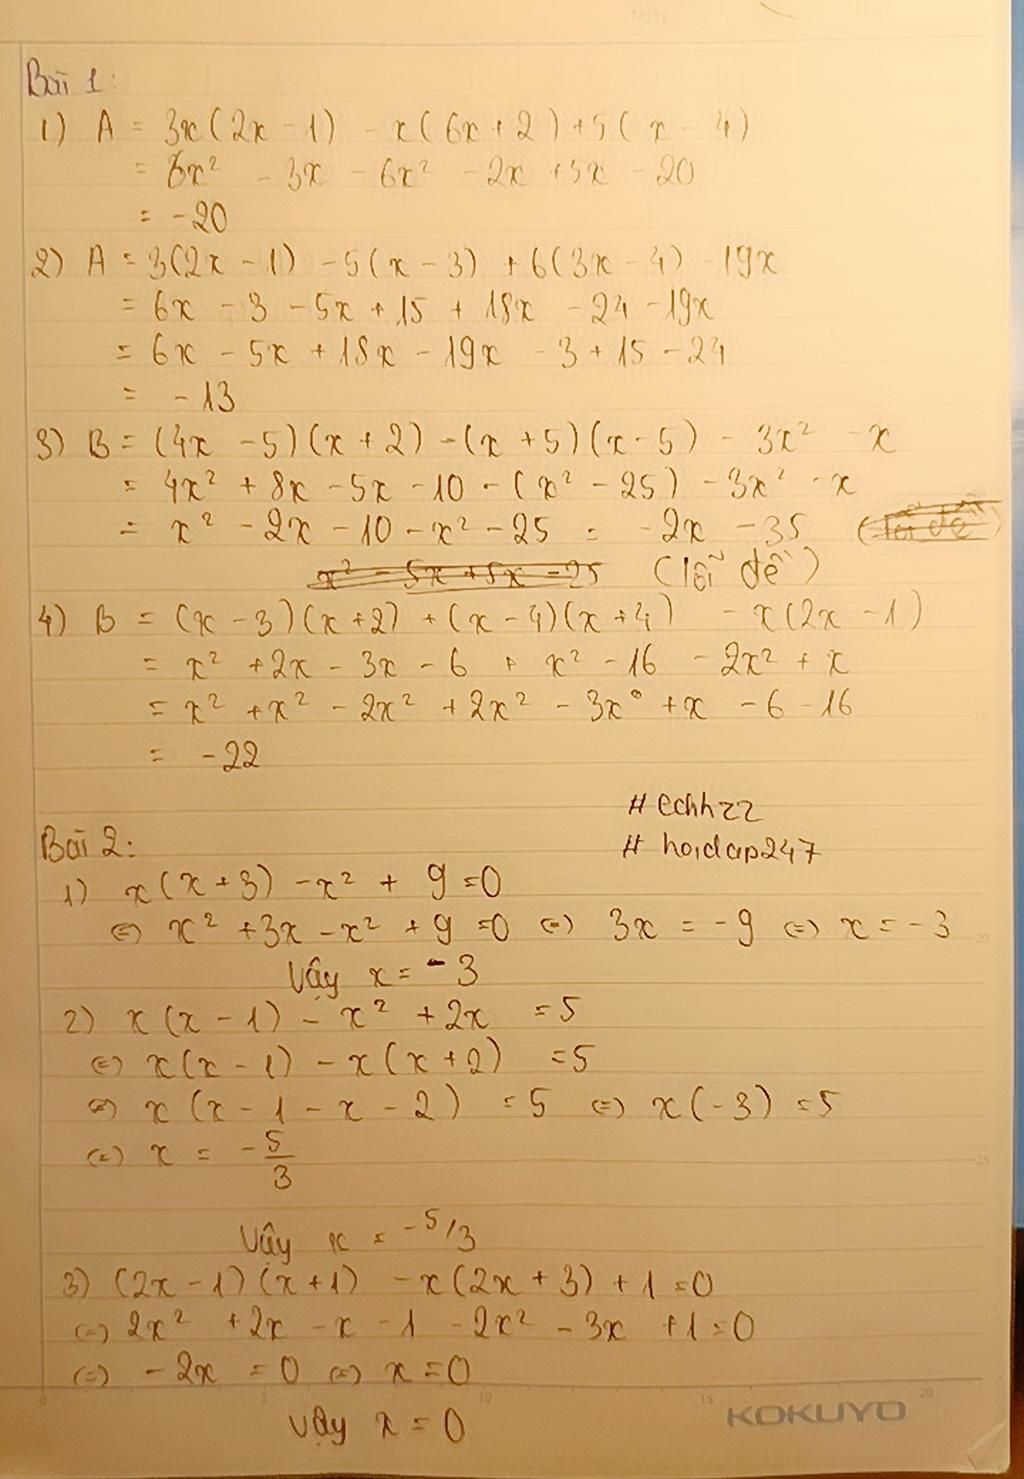 Bài 1:
1) A = 3x(2x - 1) - x(6x + 2) + 5(x - 4)
= 6x² - 3x - 6x² - 2x + 5x - 20
= -20
2) A = 3(2x - 1) - 5(x - 3) + 6(3x - 4) - 19x
= 6x - 3 - 5x + 15 + 18x - 24 - 19x
= 6x - 5x + 18x - 19x - 3 + 15 - 24
= -13
3) B = (4x - 5)(x + 2) - (x + 5)(x - 5) - 3x² - x
= 4x² + 8x - 5x - 10 - (x² - 25) - 3x² - x
= x² - 2x - 10 - x² - 25 = -2x - 35 (lỗi đề)
x² - 5x + 5x - 25 (lỗi đề)
4) B = (x - 3)(x + 2) + (x - 4)(x + 4) - x(2x - 1)
= x² + 2x - 3x - 6 + x² - 16 - 2x² + x
= x² + x² - 2x² + 2x² - 3x° + x - 6 - 16
= -22
# echhzz
Bài 2:
# hoidap247
1) x(x + 3) - x² + 9 = 0
(=) x² + 3x - x² + 9 = 0 (=) 3x = -9 (=) x = -3
Vậy x = -3
2) x(x - 1) - x² + 2x = 5
(=) x(x - 1) - x(x + 2) = 5
(=) x(x - 1 - x - 2) = 5 (=) x(-3) = 5
(=) x = -5/3
Vậy x = -5/3
3) (2x - 1)(x + 1) - x(2x + 3) + 1 = 0
(=) 2x² + 2x - x - 1 - 2x² - 3x + 1 = 0
(=) -2x = 0 (=) x = 0
Vậy x = 0
KOKUYO